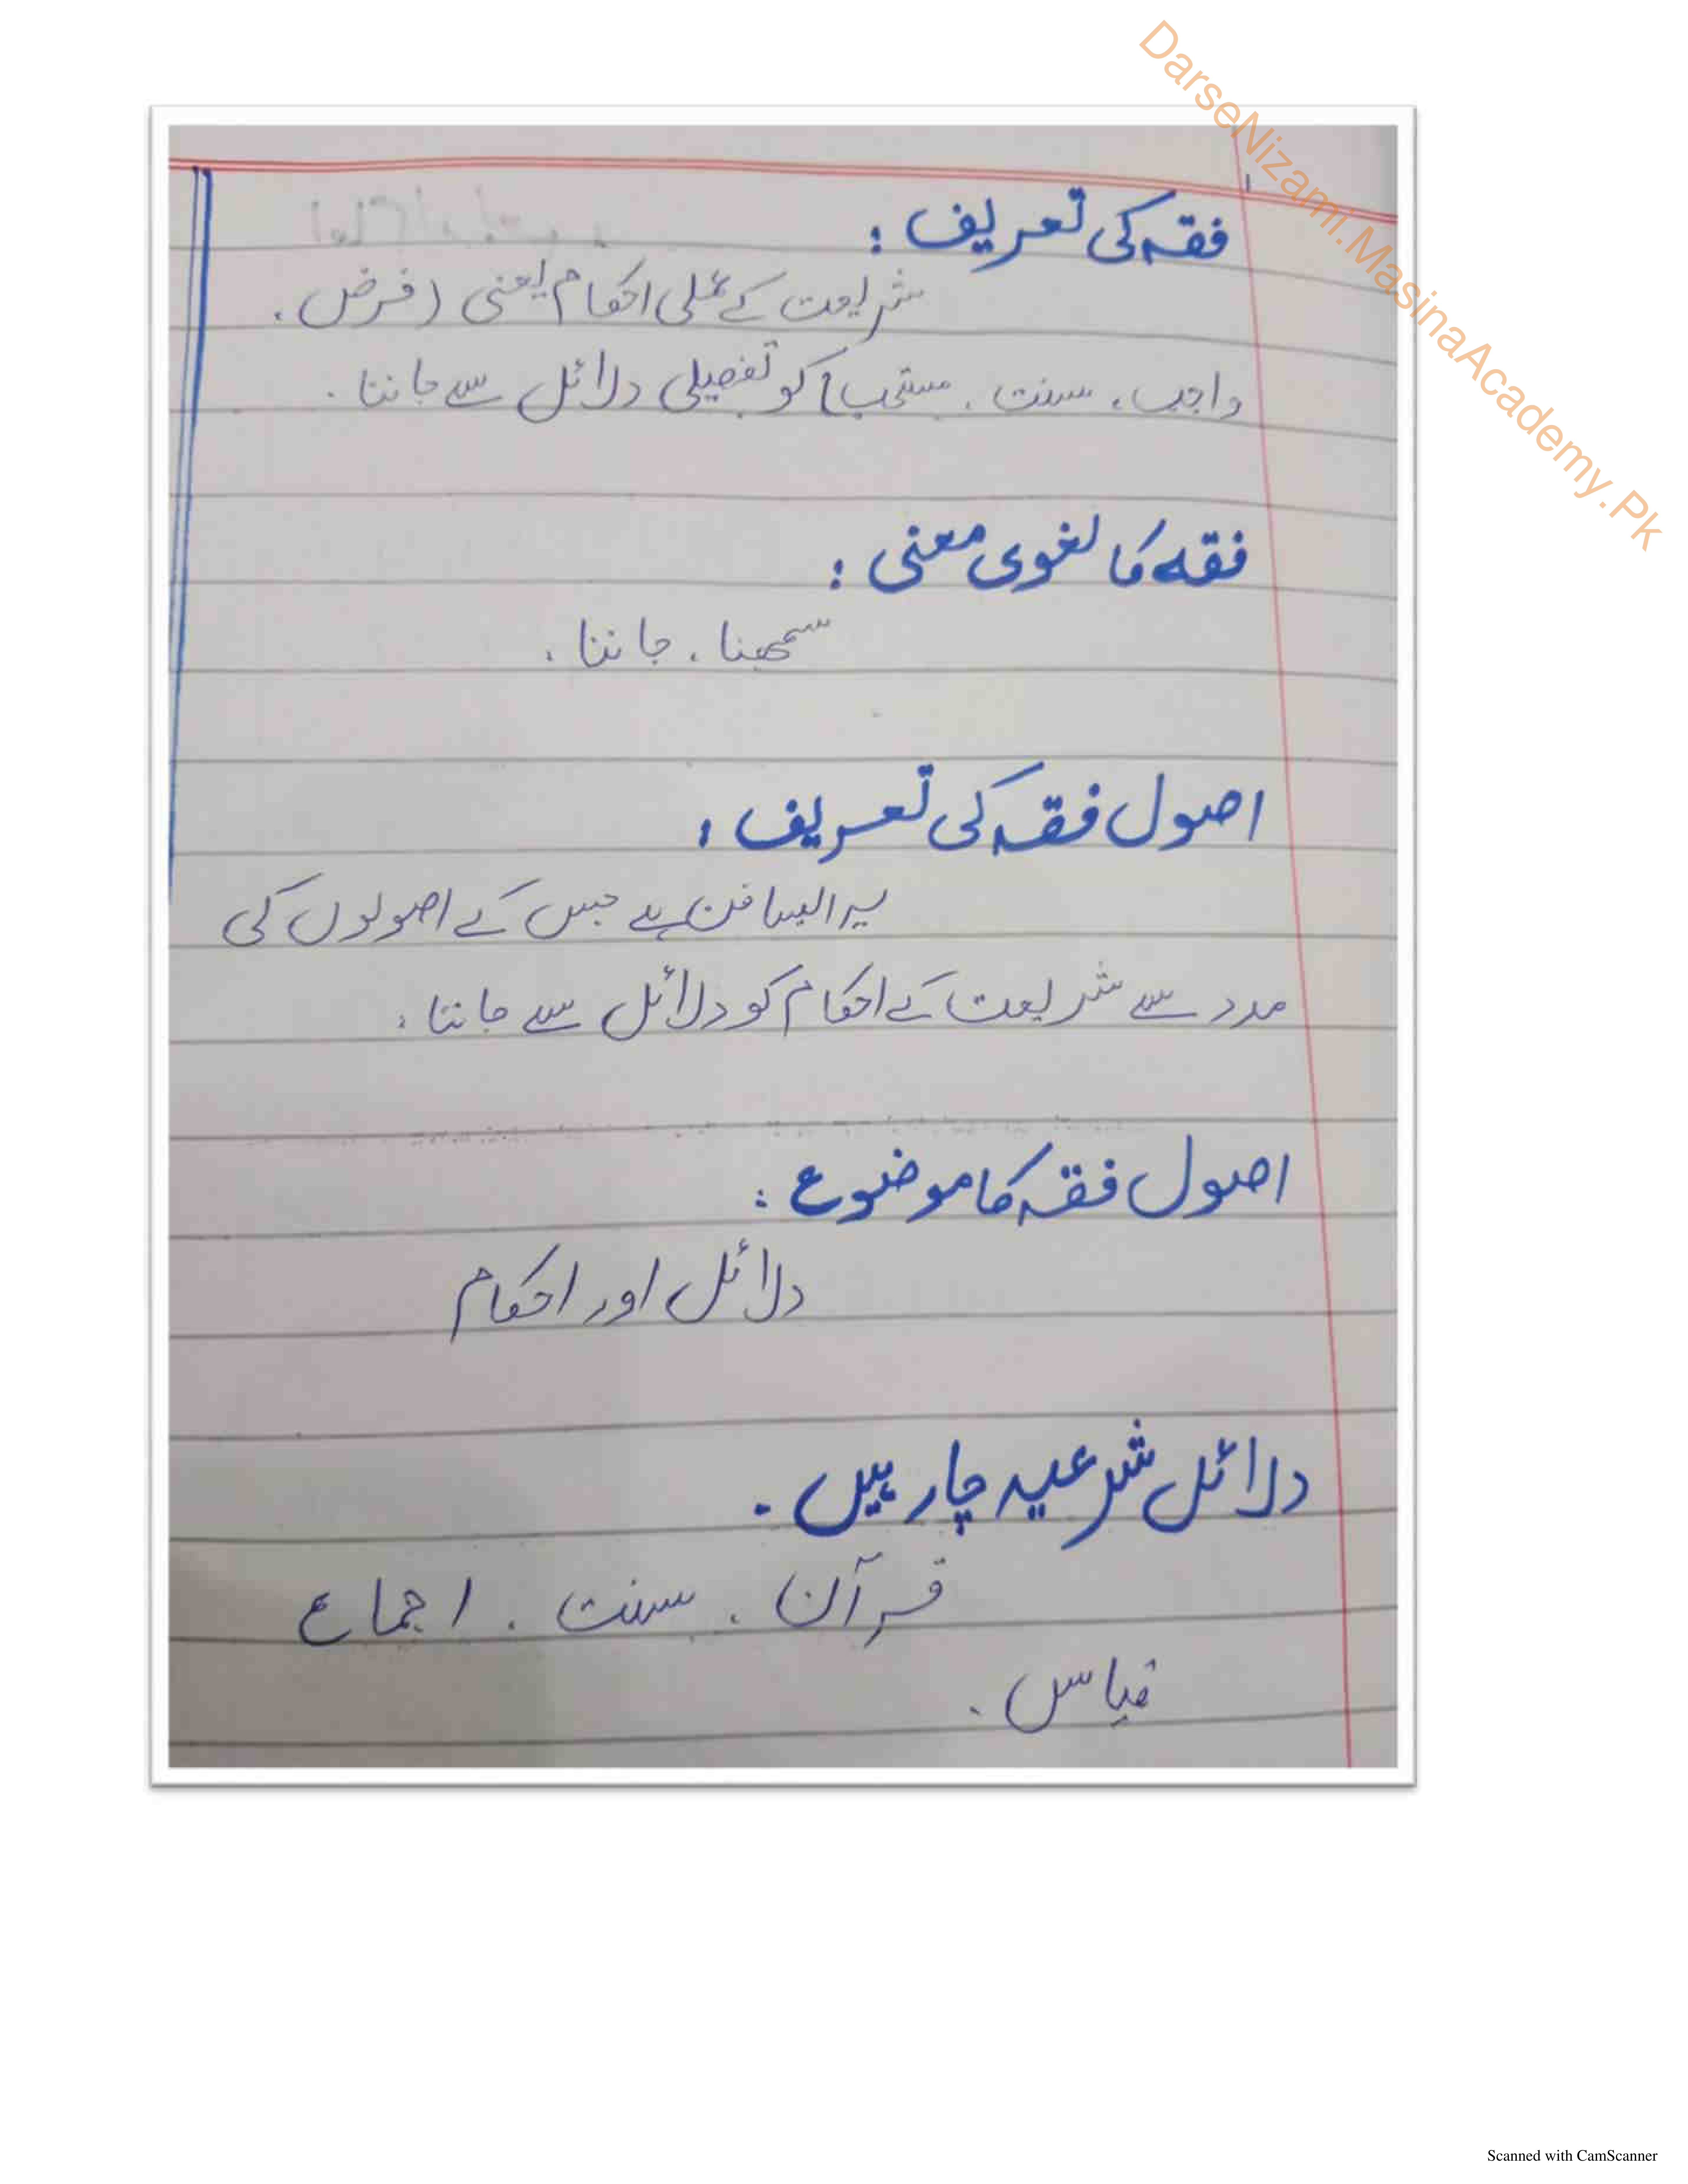 DarseNizami.MasinaAcademy.Pk
فقہ کی تعریف :
شریعت کے عملی احکام یعنی (فرض ،
واجب ، سنت ، مستحب) کو تفصیلی دلائل سے جاننا ۔
فقہ کا لغوی معنی :
سمجھنا ، جاننا ،
اصول فقہ کی تعریف :
یہ ایسا فن ہے جس کے اصولوں کی
مدد سے شریعت کے احکام کو دلائل سے جاننا ،
اصول فقہ کا موضوع :
دلائل اور احکام
دلائل شرعیہ چار ہیں ۔
قرآن ، سنت ، اجماع
قیاس ۔
Scanned with CamScanner